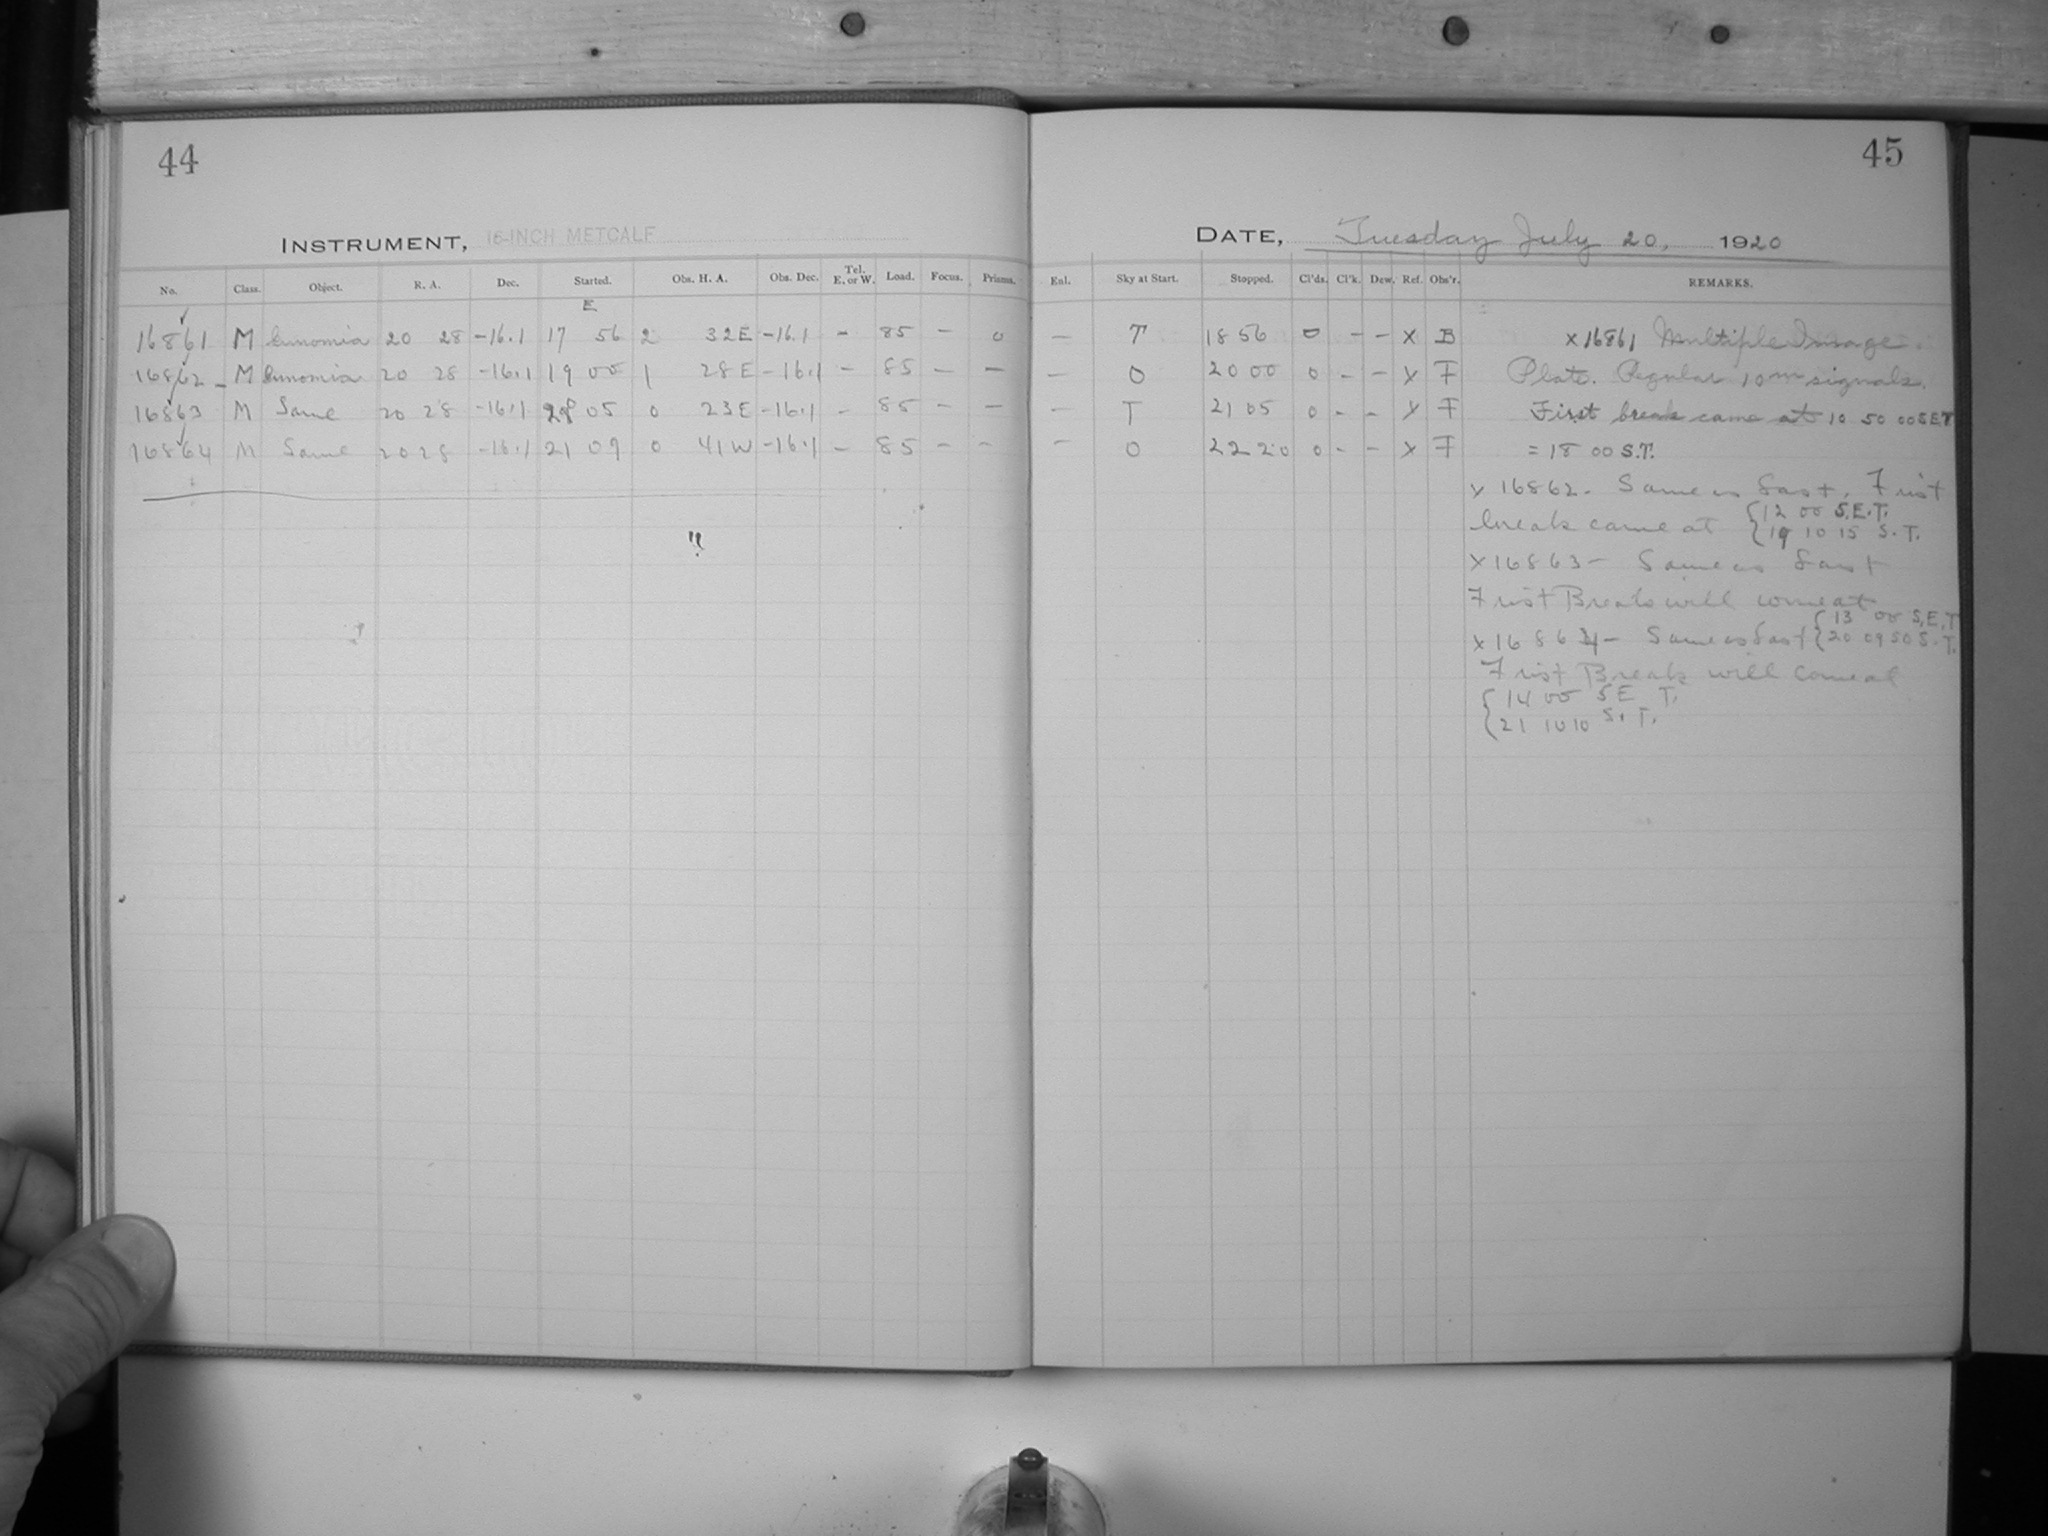 44
45
INSTRUMENT, 16-INCH METCALF
DATE, Tuesday July 20, 1920
No. Class. Object. R. A. Dec. Started. Obs. H. A. Obs. Dec. Tel. E. or W. Load. Focus. Prisms. Enl. Sky at Start. Stopped. Cl'ds. Cl'k. Dew. Ref. Obs'r. REMARKS.
E
16861 M Eunomia 20 28 -16.1 17 56 2 32E -16.1 - 85 - 0 - T 18 56 0 - - X B x16861 Multiple Image.
16862 - M Eunomia 20 28 -16.1 19 00 1 28E -16.1 - 85 - - - O 20 00 0 - - X F Plate. Regular 10m signals.
16863 M Same 20 28 -16.1 20 05 0 23E -16.1 - 85 - - - T 21 05 0 - - X F First break came at 10 50 00 S.E.T
16864 M Same 20 28 -16.1 21 09 0 41W -16.1 - 85 - - - O 22 20 0 - - X F = 18 00 S.T.
x 16862. Same as last. First
break came at { 12 00 S.E.T.
{ 19 10 15 S.T.
x 16863 - Same as last
First Break will come at
{ 13 00 S.E.T
x 16864 - Same as last { 20 09 50 S.T.
First Break will come at
{ 14 00 S E T.
{ 21 10 10 S.T.